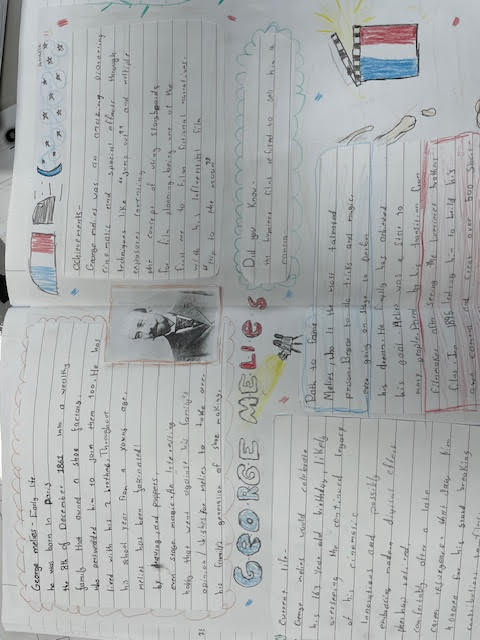 George melies - Early life
he was born in Paris
the 8th of December 1861 into a wealthy
family that owned a shoe factory
who him to join them too. He has
lived with his 2 brothers. Throughout
his school year from a young age.
melies has been fascinated
by drawing and puppets,
even stage magic. An interesting
hobby that went against his family's
opinion / wishes for melies to take over
his family's generation of shoe making.
achievements-
George melies was an amazing pioneering
cinematic and special effects through
techniques like "jump cut" and multiple
exposures
the concept of using storyboards
for film planning, being one of the
first one to film fictional narratives.
with his influential film
"trip to the moon"
GEORGE MELIES
Did you know-
the lumiere files refused to sell him a
camera
Path to Fame
Melies, who is the most talented
person. Began to do tricks and magic,
even going on stage to perform
his dream. He finally has achieved
his goal. Melies was a star to
many people. Paired by his transition from
filmmaker after seeing the lumiere brothers
film. In 1896 led him to build his
own camera and creat over 500 short
current life-
George melies would celebrate
his 163 year old birthday, likely
overseeing the continued legacy
of his cinematic
innovations and possibly
embracing modern digital effect
retired
comfortably after a late
career that saw him
honored for his ground breaking
contributions